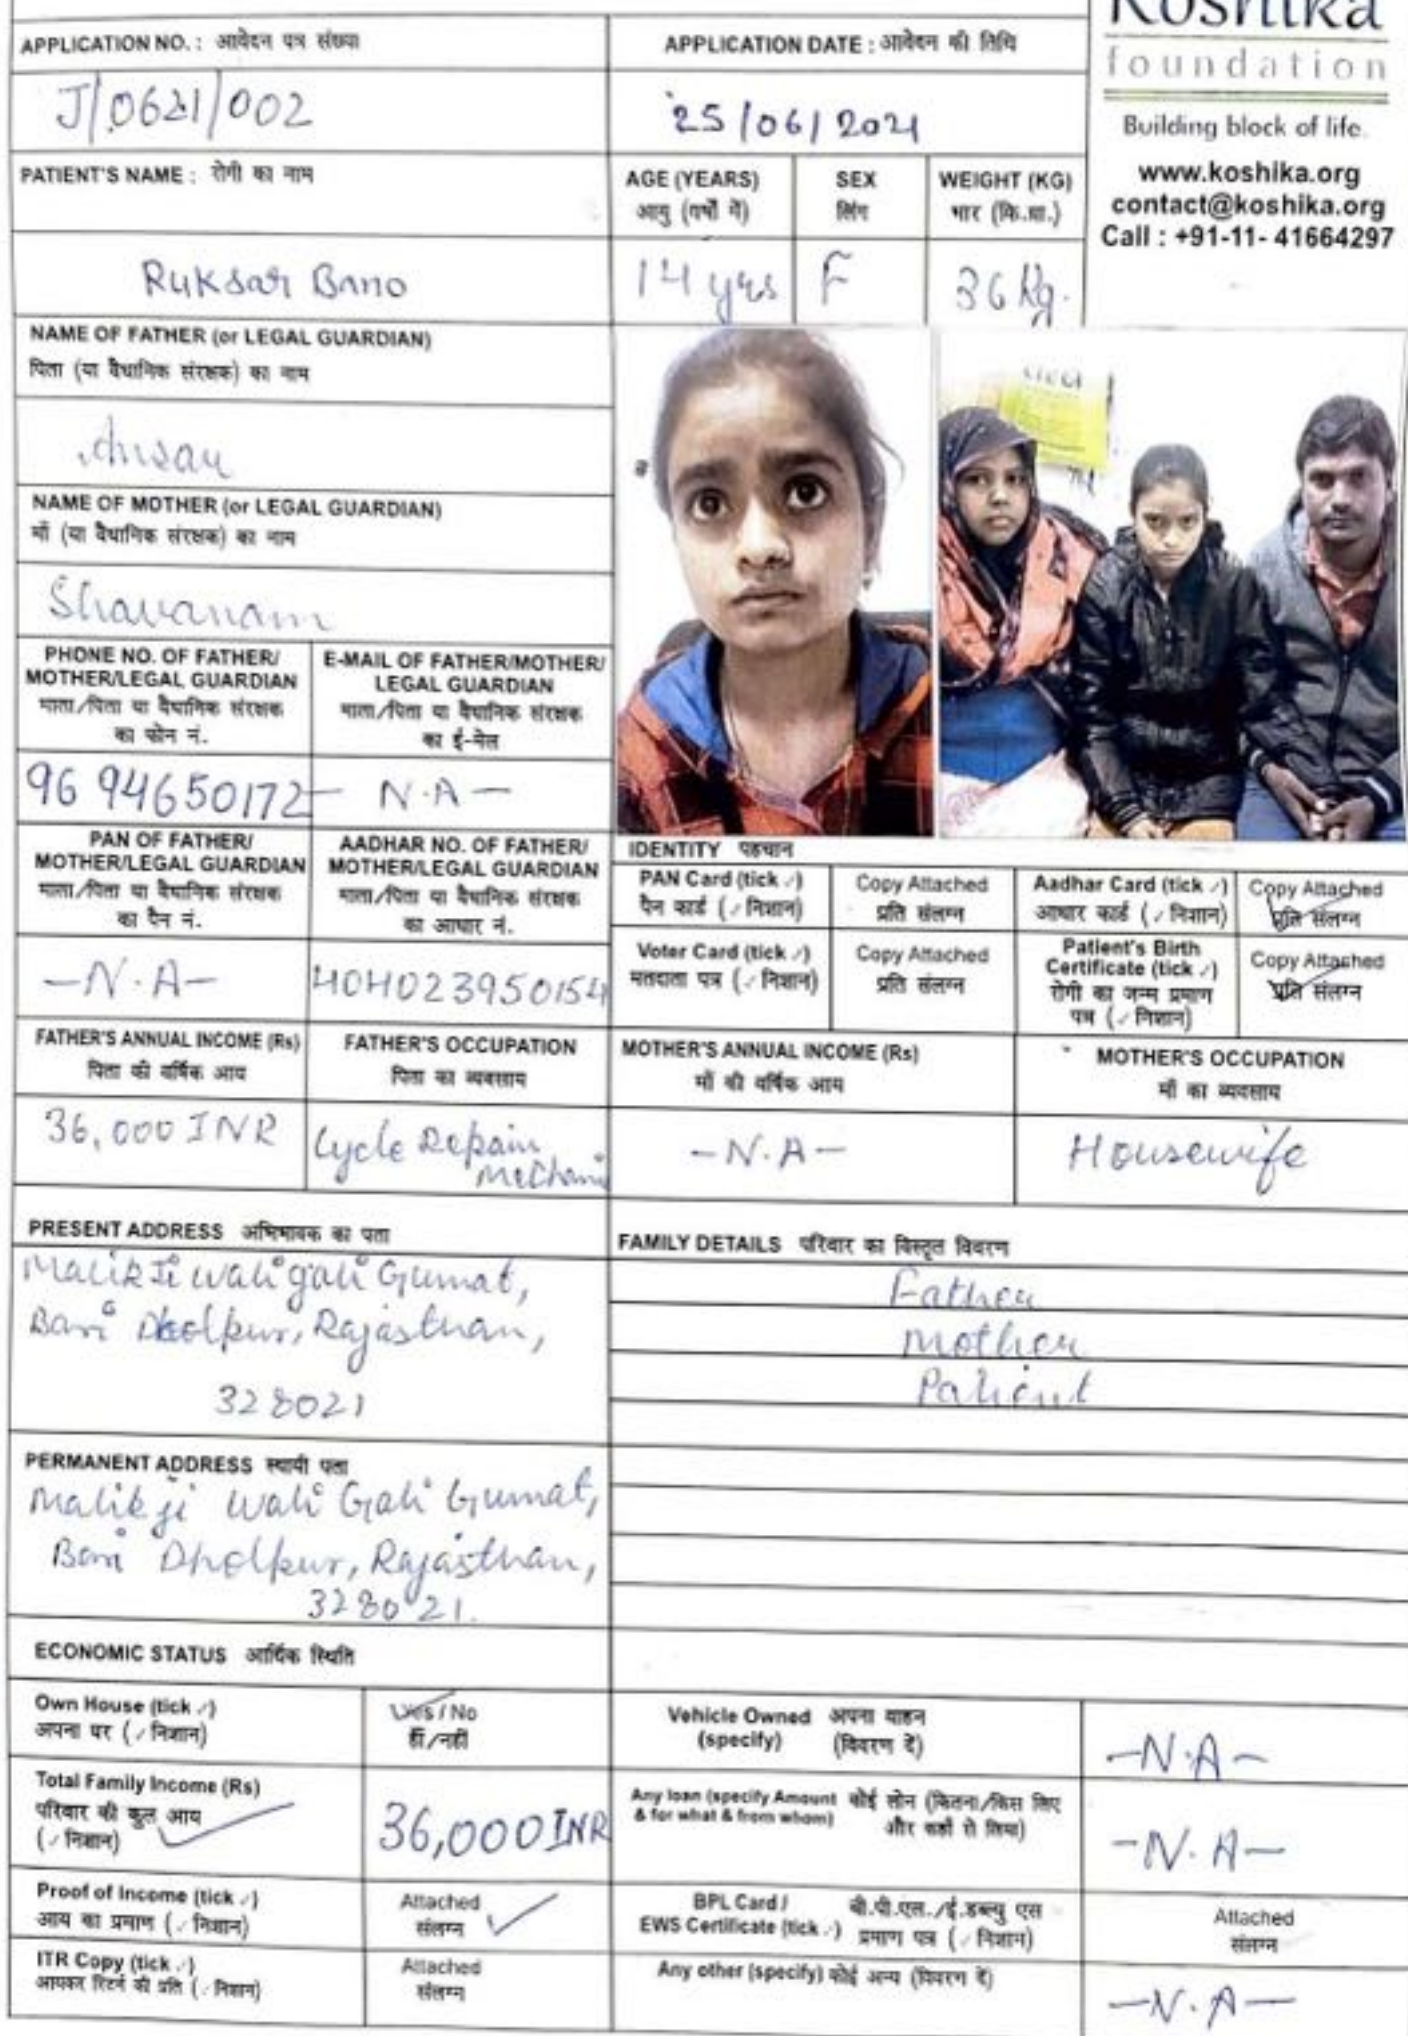 Koshika
foundation
Building block of life.
www.koshika.org
contact@koshika.org
Call : +91-11- 41664297
APPLICATION NO. : आवेदन पत्र संख्या
APPLICATION DATE : आवेदन की तिथि
J/0621/002
25/06/2021
PATIENT'S NAME : रोगी का नाम
AGE (YEARS)
आयु (वर्षों में)
SEX
लिंग
WEIGHT (KG)
भार (कि.ग्रा.)
Ruksar Bano
14 yrs
F
36 kg.
NAME OF FATHER (or LEGAL GUARDIAN)
पिता (या वैधानिक संरक्षक) का नाम
NAME OF MOTHER (or LEGAL GUARDIAN)
माँ (या वैधानिक संरक्षक) का नाम
Shavanam
PHONE NO. OF FATHER/
MOTHER/LEGAL GUARDIAN
माता/पिता या वैधानिक संरक्षक
का फोन नं.
E-MAIL OF FATHER/MOTHER/
LEGAL GUARDIAN
माता/पिता या वैधानिक संरक्षक
का ई-मेल
9694650172
- N.A -
PAN OF FATHER/
MOTHER/LEGAL GUARDIAN
माता/पिता या वैधानिक संरक्षक
का पैन नं.
AADHAR NO. OF FATHER/
MOTHER/LEGAL GUARDIAN
माता/पिता या वैधानिक संरक्षक
का आधार नं.
-N.A-
404023950154
IDENTITY पहचान
PAN Card (tick ✓)
पैन कार्ड (✓ निशान)
Copy Attached
प्रति संलग्न
Aadhar Card (tick ✓)
आधार कार्ड (✓ निशान)
Copy Attached
प्रति संलग्न
Voter Card (tick ✓)
मतदाता पत्र (✓ निशान)
Copy Attached
प्रति संलग्न
Patient's Birth
Certificate (tick ✓)
रोगी का जन्म प्रमाण
पत्र (✓ निशान)
Copy Attached
प्रति संलग्न
FATHER'S ANNUAL INCOME (Rs)
पिता की वार्षिक आय
FATHER'S OCCUPATION
पिता का व्यवसाय
MOTHER'S ANNUAL INCOME (Rs)
माँ की वार्षिक आय
MOTHER'S OCCUPATION
माँ का व्यवसाय
36,000 INR
Cycle Repair
Mechanic
-N.A-
Housewife
PRESENT ADDRESS अभिभावक का पता
Malik Ji Wali gali Gumat,
Bari Dholpur, Rajasthan,
328021
FAMILY DETAILS परिवार का विस्तृत विवरण
Father
Mother
Patient
PERMANENT ADDRESS स्थायी पता
Malik ji Wali Gali Gumat,
Bari Dholpur, Rajasthan,
328021.
ECONOMIC STATUS आर्थिक स्थिति
Own House (tick ✓)
अपना घर (✓ निशान)
Yes / No
हाँ/नहीं
Vehicle Owned अपना वाहन
(specify) (विवरण दें)
-N.A-
Total Family Income (Rs)
परिवार की कुल आय
(✓ निशान)
36,000 INR
Any loan (specify Amount कोई लोन (कितना/किस लिए
& for what & from whom) और कहाँ से लिया)
-N.A-
Proof of Income (tick ✓)
आय का प्रमाण (✓ निशान)
Attached
संलग्न
BPL Card / बी.पी.एल./ई.डब्ल्यु एस
EWS Certificate (tick ✓) प्रमाण पत्र (✓ निशान)
Attached
संलग्न
ITR Copy (tick ✓)
आयकर रिटर्न की प्रति (✓ निशान)
Attached
संलग्न
Any other (specify) कोई अन्य (विवरण दें)
-N.A-